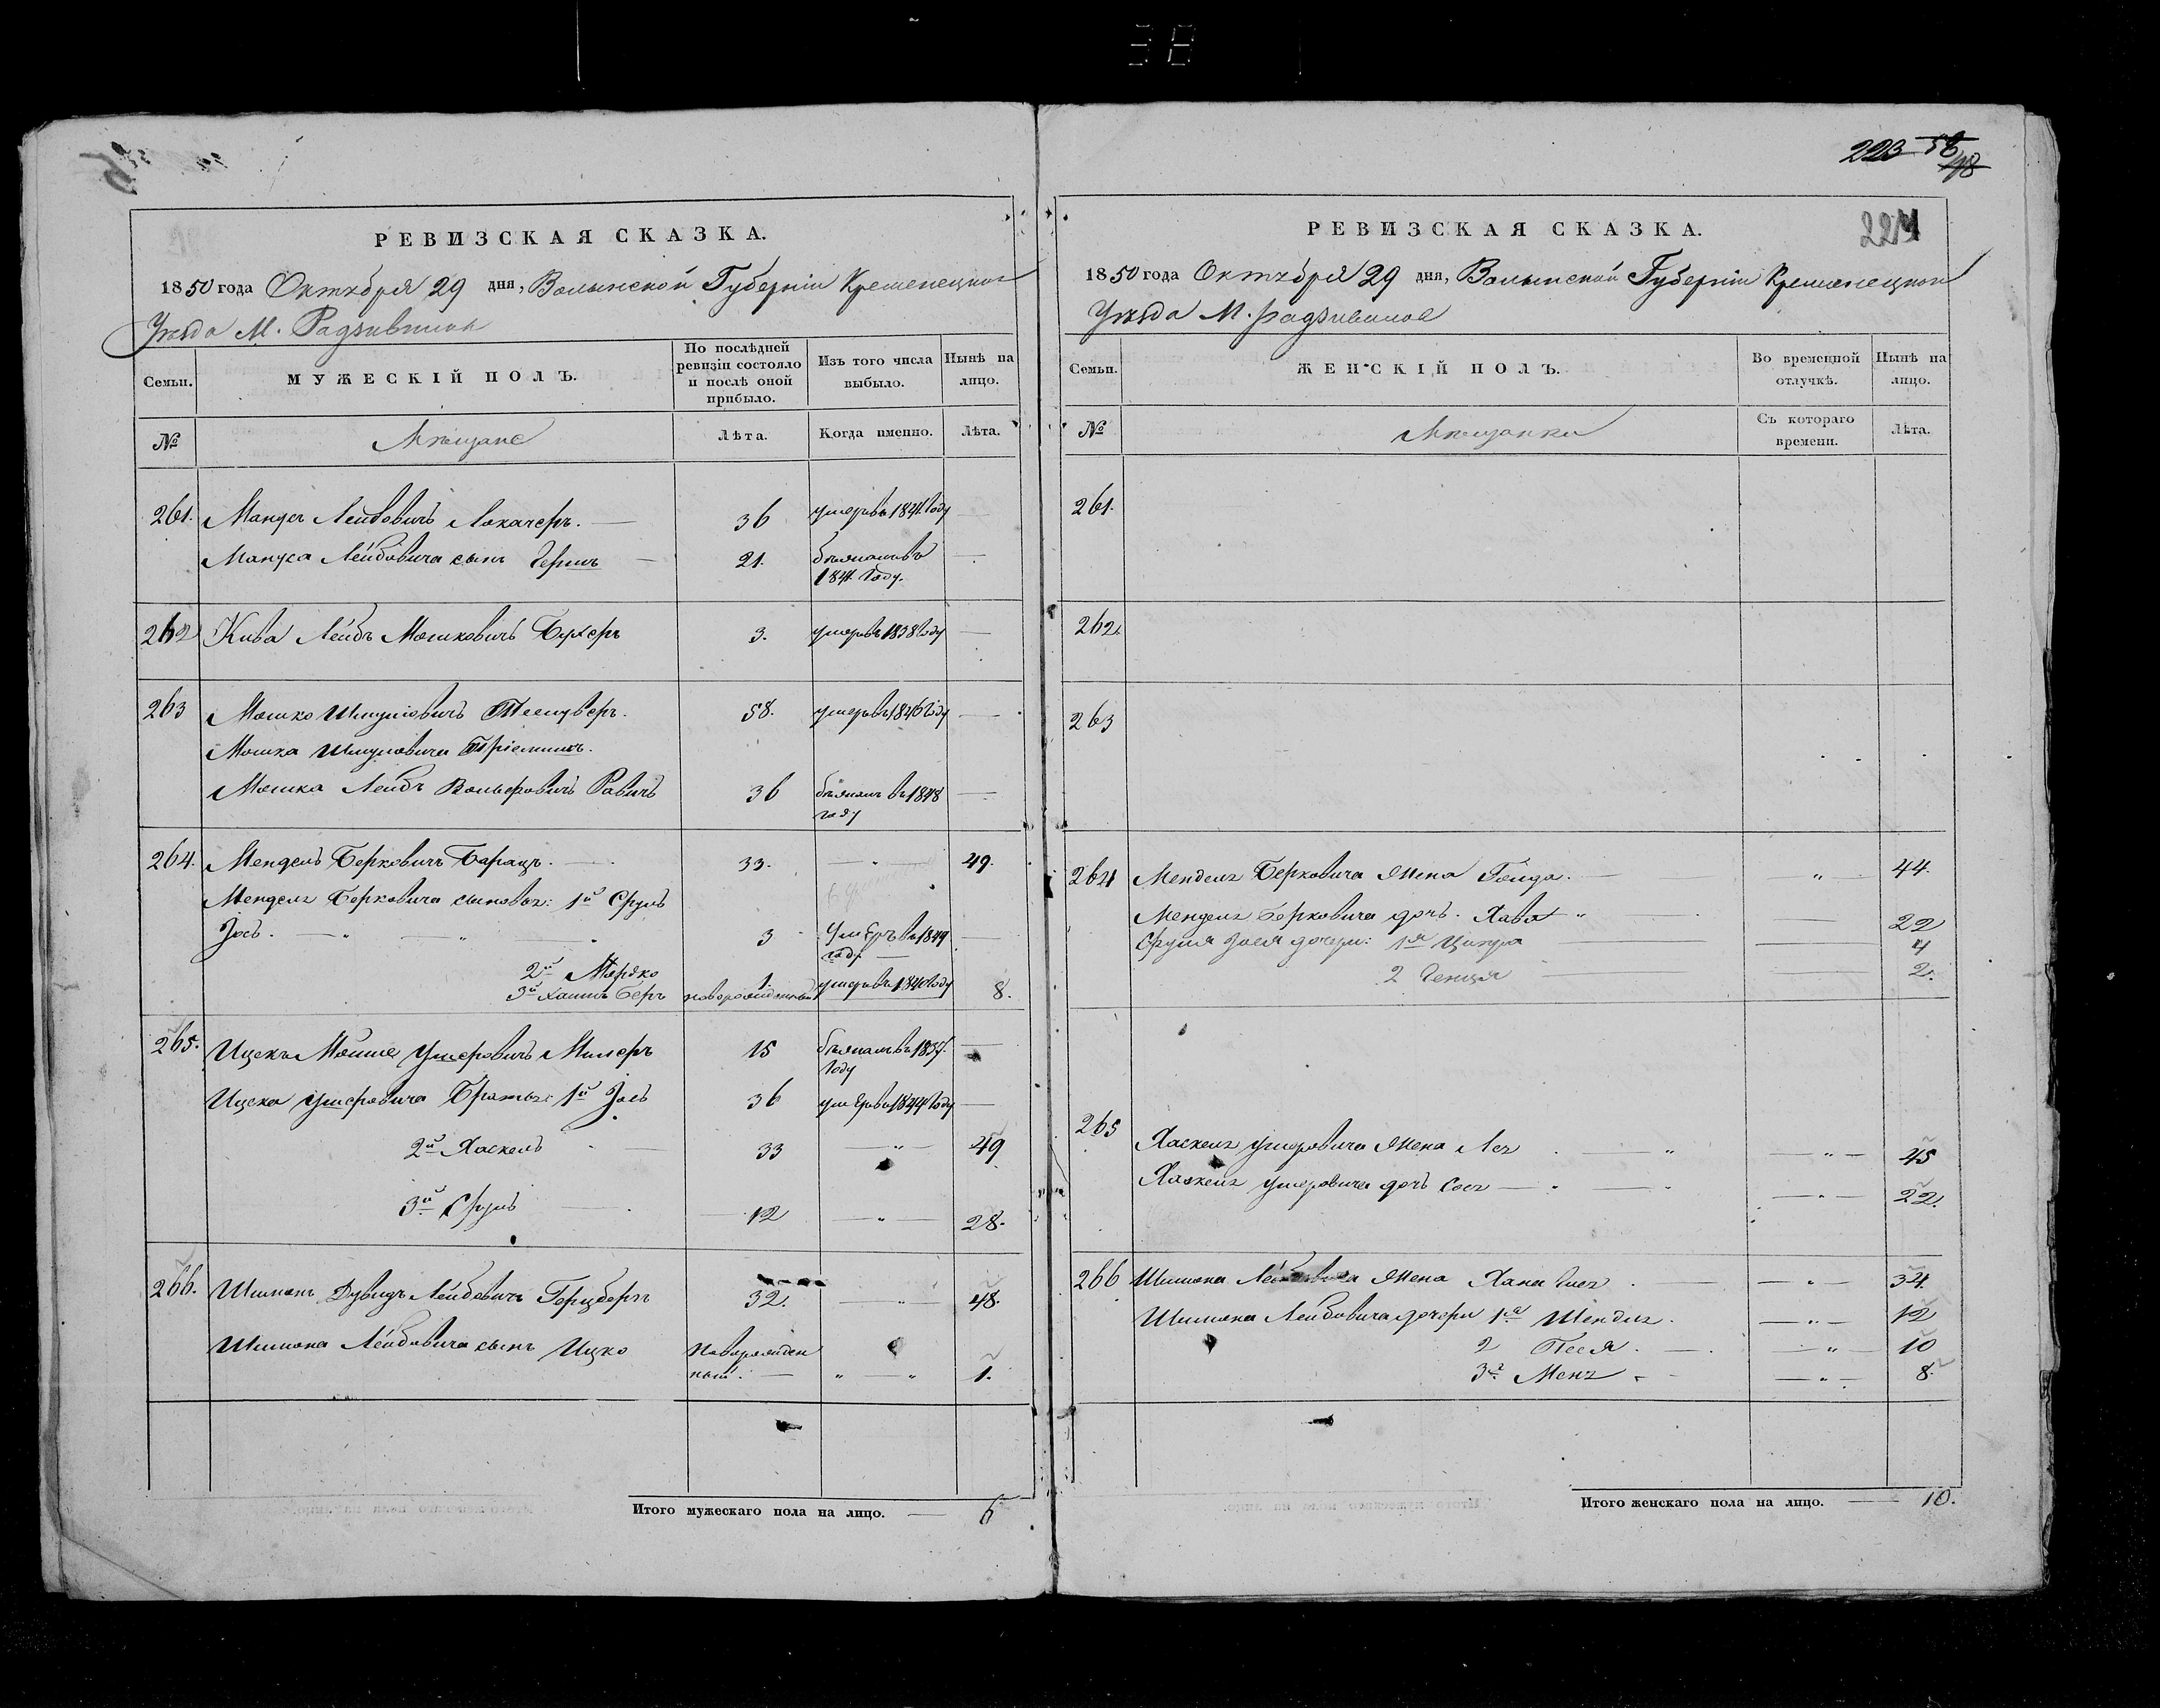 223 56
48
РЕВИЗСКАЯ СКАЗКА.
1850 года Октября 29 дня, Волынской Губерніи Кременецкаго
Уѣзда М. Радзивилов
Семьи.
МУЖЕСКІЙ ПОЛЪ.
По послѣдней ревизіи состояло и послѣ оной прибыло.
Изъ того числа выбыло.
Нынѣ на лицо.
№
Мѣщане
Лѣта.
Когда именно.
Лѣта.
261. Лейбовичъ Локачеръ. 36 умеръ въ 1841 Году
Лейбовича сынъ Гершъ 21. бѣжалъ въ
184 Году.
262 Кива Лейбъ Мошковичъ Бухеръ 3. умеръ въ 1838 Году
263 Мошко Шмулiовичъ 58. умеръ въ 1846 Году
Мошка Шмуловича Пріемышъ.
Мошка Лейбъ Вольфовичъ Равичъ 36 бѣжалъ въ 1848
году
264. Мендель Берковичъ Барацъ. 33. — " — 49.
Менделя Берковича сыновья: 1й Сруль
Зось. — " — " 3 Умеръ въ 1849
году
2й Мортко 1 умеръ въ 1840 Году
3й Хаимъ Беръ новорожденный 8.
265. Ицекъ Мойше Ушеровичъ Милеръ 15 бѣжалъ въ 1837.
Году
Ицека Ушеровича Братья: 1й Зось 36 умеръ въ 1844 Году
2й Хаскель 33 — " — 49
3й Сруль 12 — " — 28.
266. Шимонъ Дувидъ Лейбовичъ Герцбергъ 32. — " — 48.
Шимона Лейбовича сынъ Ицко Новорожден
ный. — " — " 1.
Итого мужескаго пола на лицо. — 6
РЕВИЗСКАЯ СКАЗКА.
224
1850 года Октября 29 дня, Волынской Губерніи Кременецкаго
Уѣзда М. Радзивилов
Семьи.
ЖЕНСКІЙ ПОЛЪ.
Во временной отлучкѣ.
Нынѣ на лицо.
№
Мѣщанки
Съ котораго времени.
Лѣта.
261.
262.
263
264 Менделя Берковича жена Гольда. — " — 44.
Менделя Берковича дочь. Хава — " 22
Сруля Зося дочери: 1я Ципра 4
2 Генця 2.
265
Хаскеля Ушеровича жена Лея — " — " — 45
Хаскеля Ушеровича дочь Сося — " — " — 22.
266 Шимона Лейбовича жена Хана — " — 34.
Шимона Лейбовича дочери 1я Шендля. — " — 12
2 Песя. — " 10
3я Меня — " — 8.
Итого женскаго пола на лицо. — 10.